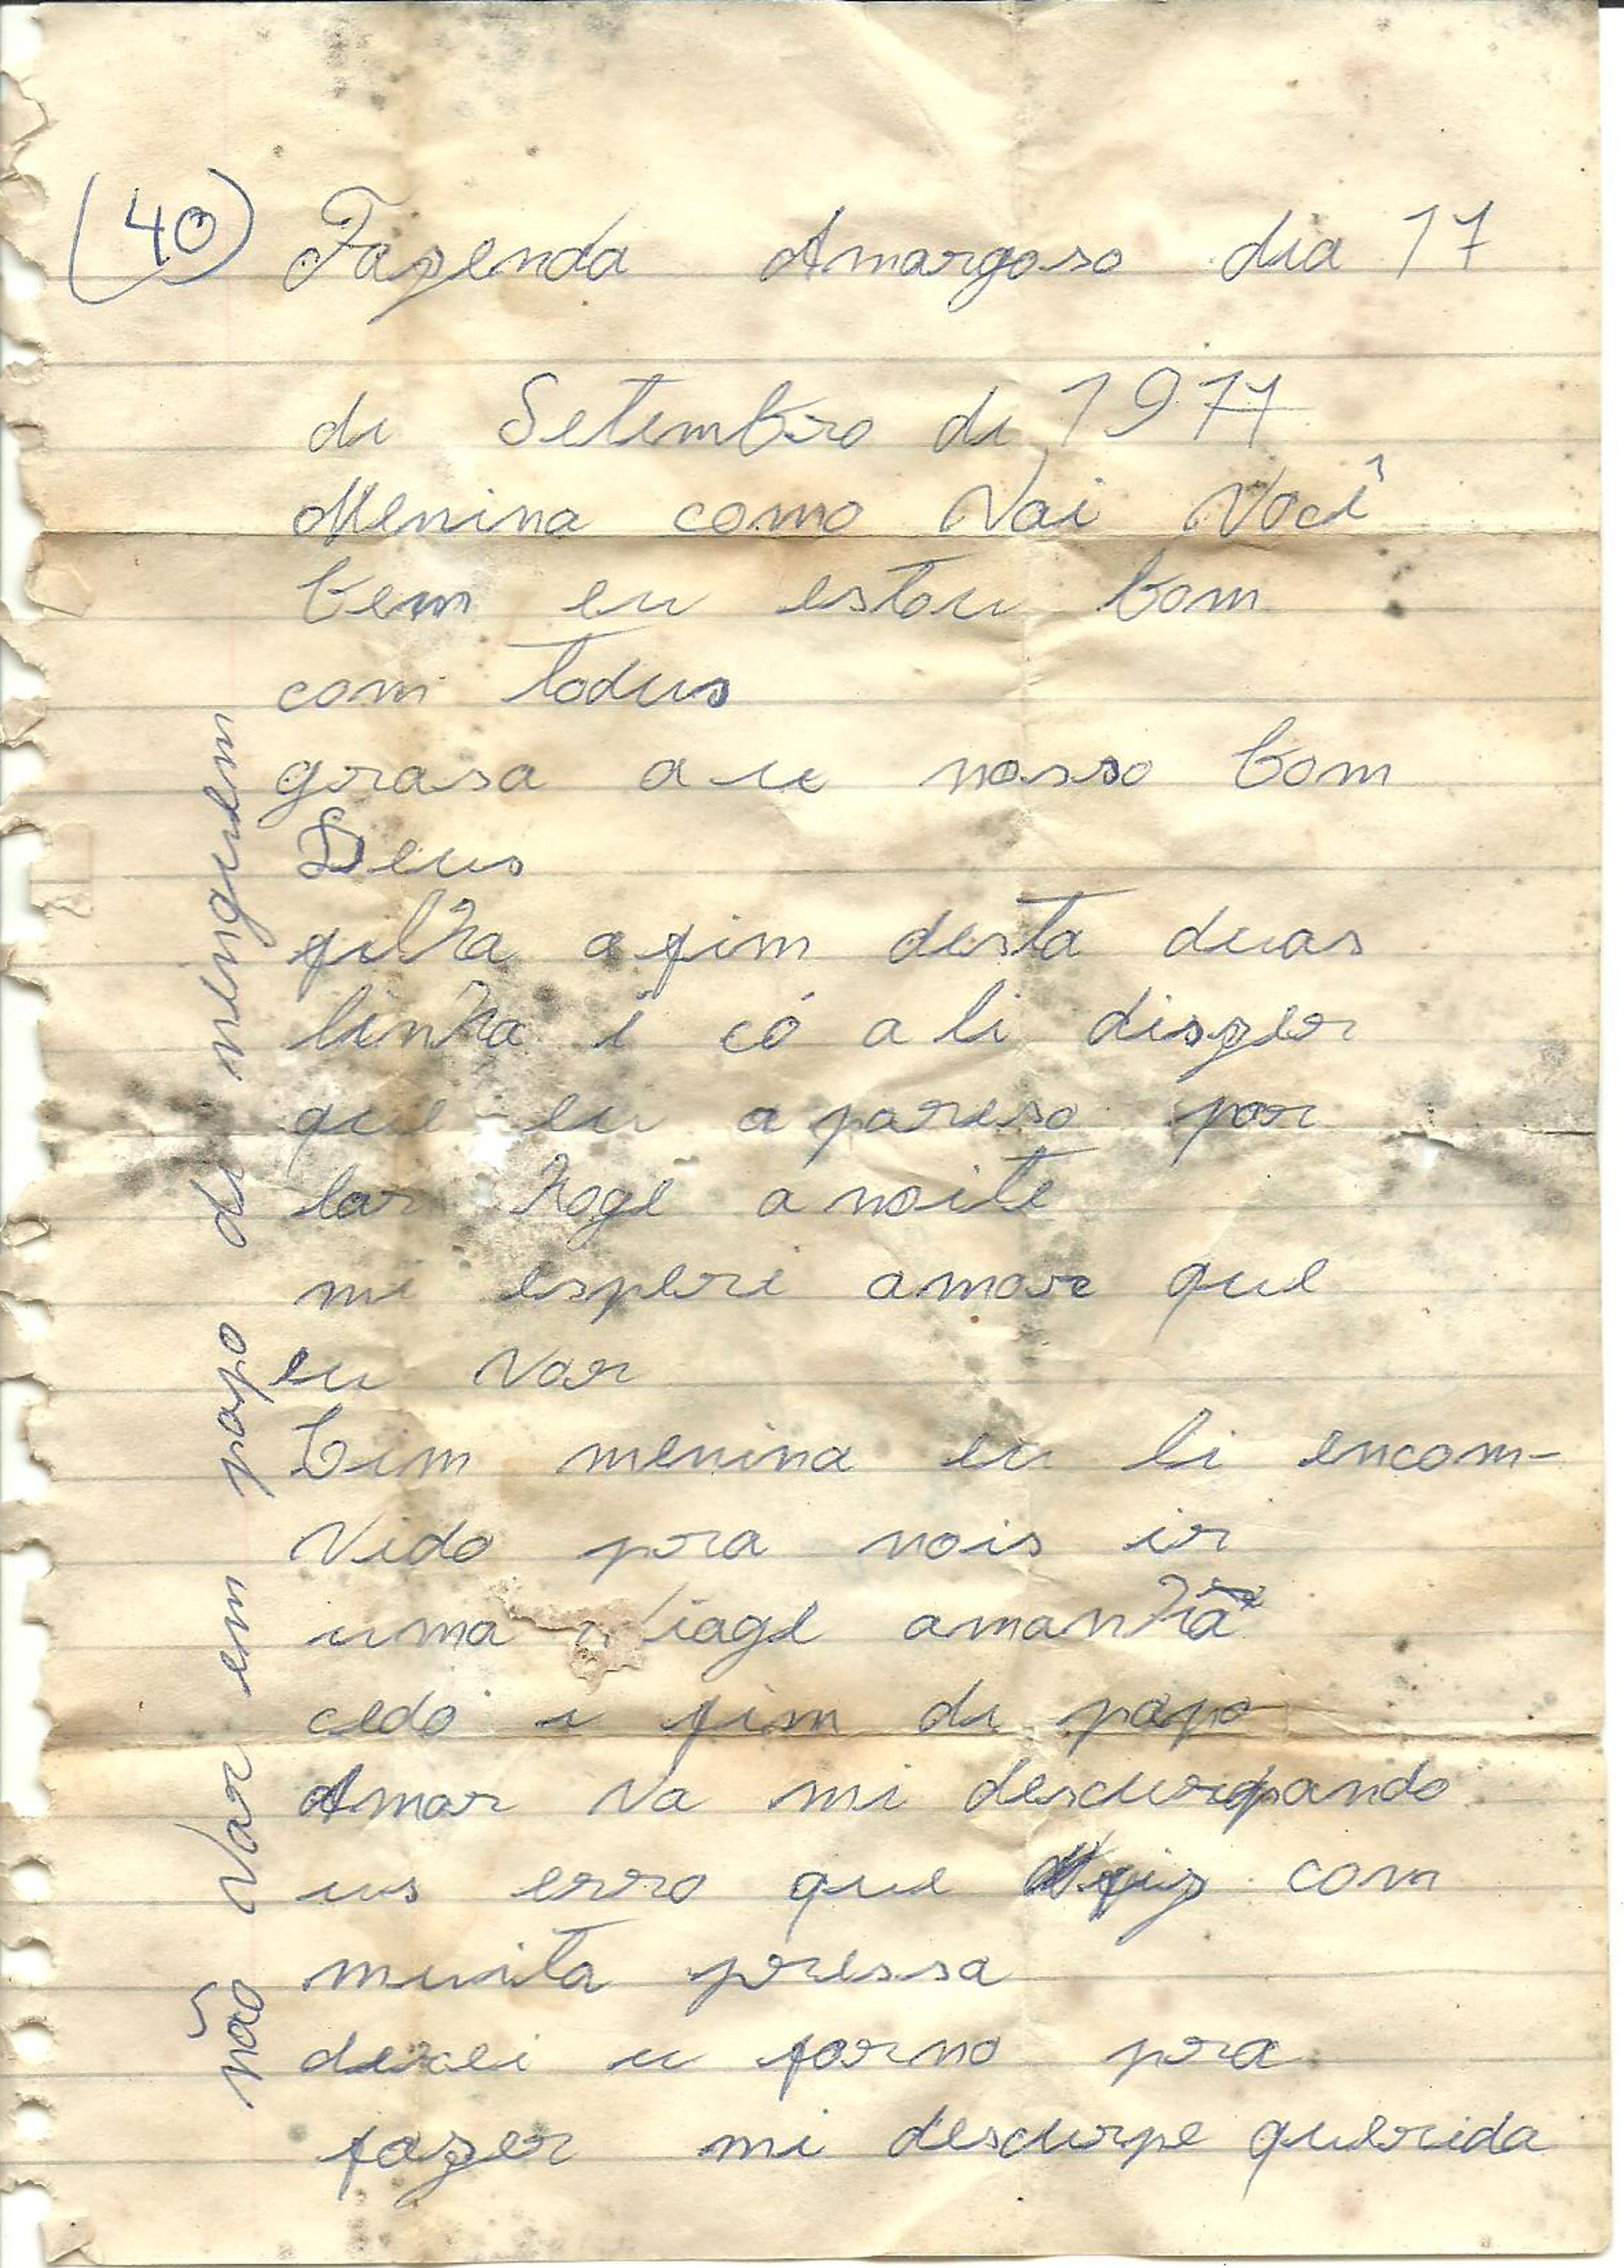 (40) Fazenda Amargoso dia 17
di Setembro di 1977
Menina como Vai Você
bem eu estou bom
com todus
grasa a u nosso bom
Deus
filha a fim desta duas
linha é có a li diszer
que eu a pareso por
lar hoge a noite
mi esperi amor que
eu var
bim menina eu li encom-
vido pra nois ir
uma viage amanhã
cedo i fim di papo
Amor va mi descurpando
us erro que fiz com
muita pressa
deixei u forno pra
fazer mi descurpe querida
não var em papo di ninguem